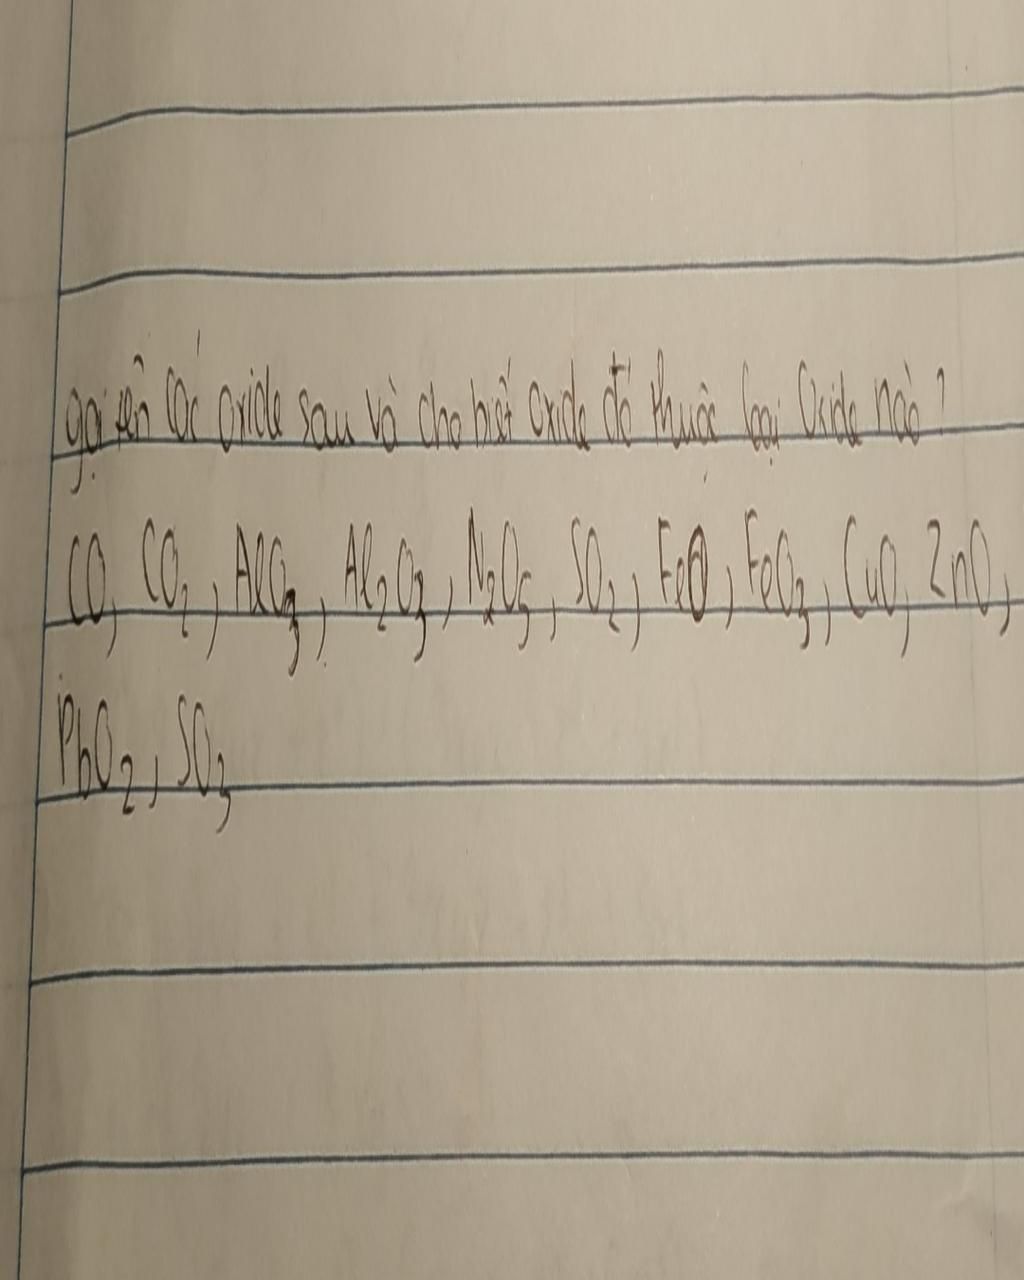 gọi tên các oxide sau và cho biết oxide đó thuộc loại Oxide nào?
CO, CO₂, AlO₃, Al₂O₃, N₂O₅, SO₂, FeO, FeO₃, CuO, ZnO,
PbO₂, SO₃